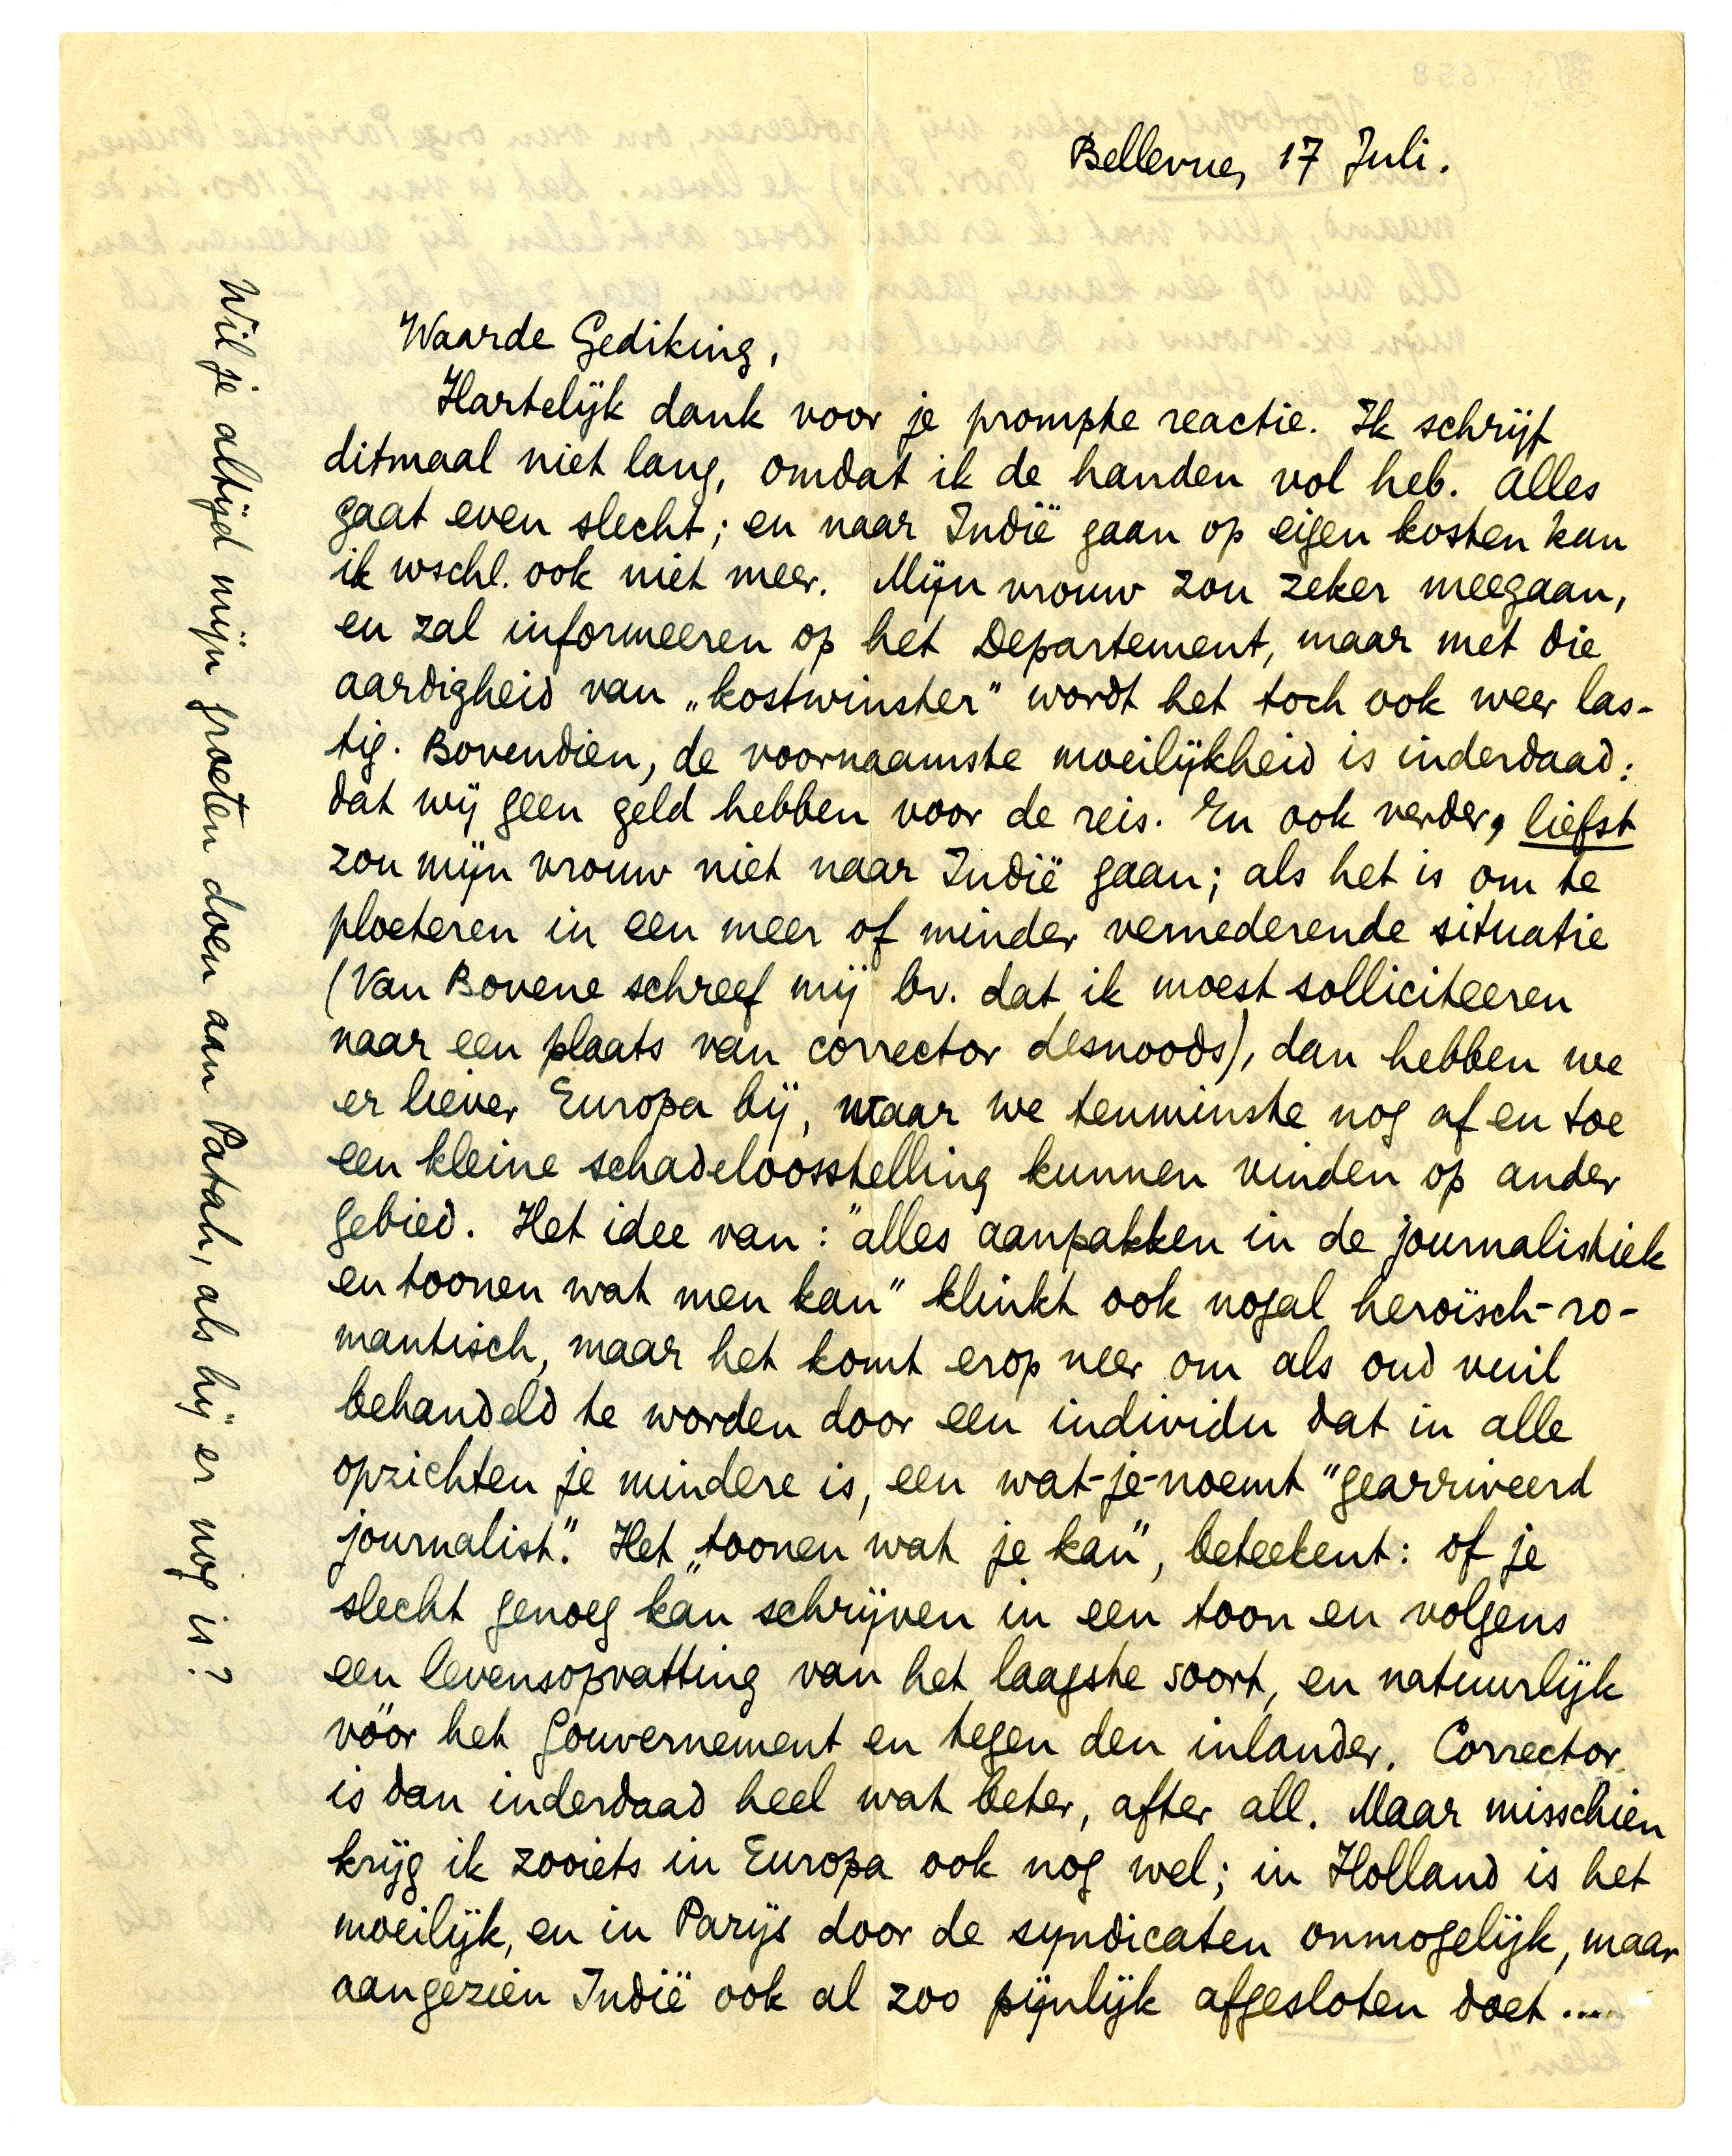 Bellevue, 17 Juli.
Waarde Gediking,
Hartelijk dank voor je prompte reactie. Ik schrijf
ditmaal niet lang, omdat ik de handen vol heb. Alles
gaat even slecht; en naar Indië gaan op eigen kosten kan
ik wschl. ook niet meer. Mijn vrouw zou zeker meegaan,
en zal informeeren op het Departement, maar met die
aardigheid van „kostwinster” wordt het toch ook weer las-
tig. Bovendien, de voornaamste moeilijkheid is inderdaad:
dat wij geen geld hebben voor de reis. En ook verder, liefst
zou mijn vrouw niet naar Indië gaan; als het is om te
ploeteren in een meer of minder vernederende situatie
(Van Bovene schreef mij bv. dat ik moest solliciteeren
naar een plaats van corrector desnoods), dan hebben we
er liever Europa bij, waar we tenminste nog af en toe
een kleine schadeloosstelling kunnen vinden op ander
gebied. Het idee van: "alles aanpakken in de journalistiek
en toonen wat men kan" klinkt ook nogal heroïsch-ro-
mantisch, maar het komt erop neer om als oud vuil
behandeld te worden door een individu dat in alle
opzichten je mindere is, een wat-je-noemt "gearriveerd
journalist." Het „toonen wat je kan”, beteekent: of je
slecht genoeg kan schrijven in een toon en volgens
een levensopvatting van het laagste soort, en natuurlijk
vóór het gouvernement en tegen den inlander. Corrector
is dan inderdaad heel wat beter, after all. Maar misschien
krijg ik zooiets in Europa ook nog wel; in Holland is het
moeilijk, en in Parijs door de syndicaten onmogelijk, maar
aangezien Indië ook al zoo pijnlijk afgesloten doet....
Wil je altijd mijn groeten doen aan Patah, als hij er nog is?